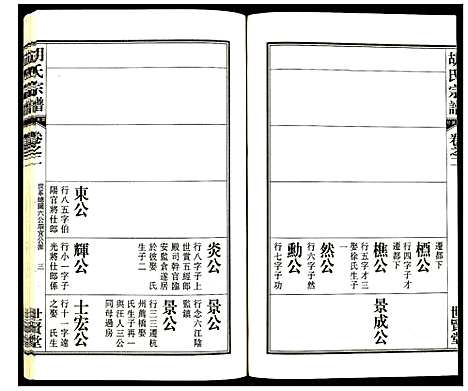 胡氏宗譜
卷之二
櫏公
行四字子才
遷都下
樵公
行五字才三
娶徐氏生子
一
然公
行六字子然
勳公
行七字子功
景成公
世賢堂
炎公
行八字子上
世賞五經郎
殿司幹官臨
安監倉遂居
於彼娶 氏
生子二
景公
行念六江陰
監鎮
景公
行三三遷杭
州薦橋娶
氏生子再一
與汪人三公
同母過房
東公
行八五字伯
陽官將仕郎
輝公
行小一字子
光將仕郎係
士宏公
行十一字遠
之娶 氏生
胡氏宗譜
卷之二
三
世賢堂